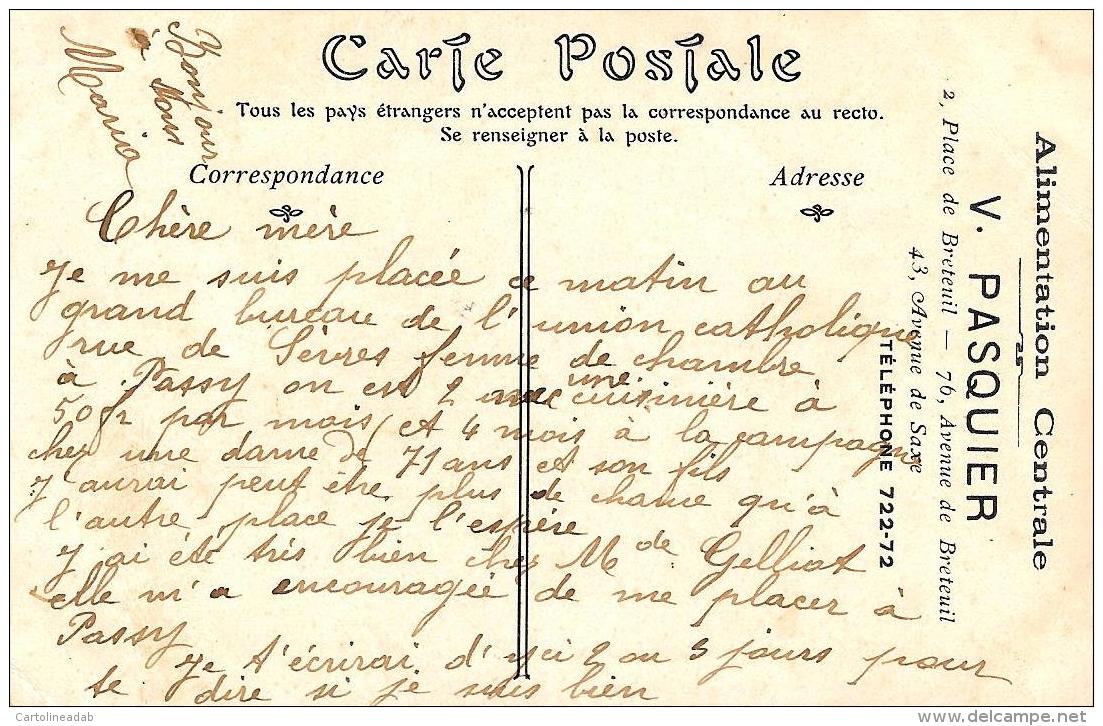 Carte Postale
Tous les pays étrangers n'acceptent pas la correspondance au recto.
Se renseigner à la poste.
Correspondance
Adresse
Bonjour
à tous
Maria
Chère mère
Je me suis placée ce matin au
grand bureau de l'union catholique
rue de Sèvres femme de chambre
à Passy on est 2 avec une cuisinière à
50 fr par mois et 4 mois à la campagne
chez une dame de 71 ans et son fils
J aurai peut être plus de chance qu'à
l'autre place je l'espère
J ai été très bien chez Mde Gelliot
elle m'a encouragée de me placer à
Passy
Je t'écrirai d'ici 2 ou 3 jours pour
te dire si je suis bien
Alimentation Centrale
V. PASQUIER
2, Place de Breteuil — 76, Avenue de Breteuil
43, Avenue de Saxe
TÉLÉPHONE 722-72
Cartolineadab
www.delcampe.net